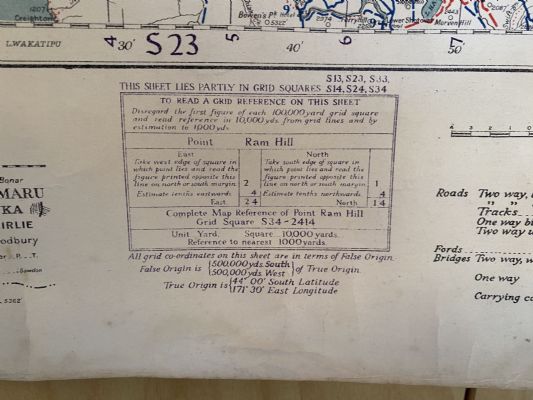 1207
Creighton
Bowen's Pt.
2074
5322
Mavora Hill
2443
2087
LWAKATIPU
4 30' S23 5 40' 6 7 50'
S13, S23, S33,
THIS SHEET LIES PARTLY IN GRID SQUARES S14, S24, S34
TO READ A GRID REFERENCE ON THIS SHEET
Disregard the first figure of each 100,000 yard grid square
and read reference in 10,000 yds. from grid lines and by
estimation to 1,000 yds.
Point Ram Hill
East
Take west edge of square in
which point lies and read the
figure printed opposite this
line on north or south margin. 2
Estimate tenths eastwards. 4
East. 24
North
Take south edge of square in
which point lies and read the
figure printed opposite this
line on north or south margin. 1
Estimate tenths northwards. 4
North 14
Complete Map Reference of Point Ram Hill
Grid Square S34-2414
Unit Yard, Square 10,000 yards.
Reference to nearest 1000 yards.
All grid co-ordinates on this sheet are in terms of False Origin.
False Origin is {500,000 yds. South
500,000 yds. West} of True Origin.
True Origin is {44° 00' South Latitude
171° 30' East Longitude
Bonar
MARU
KA
IRLIE
oodbury
P....T.
Sowdon
5362'
A 3 2 1 0
Roads Two way,
" "
Tracks
One way bi
Two way u
Fords
Bridges Two way, w
One way
Carrying ca